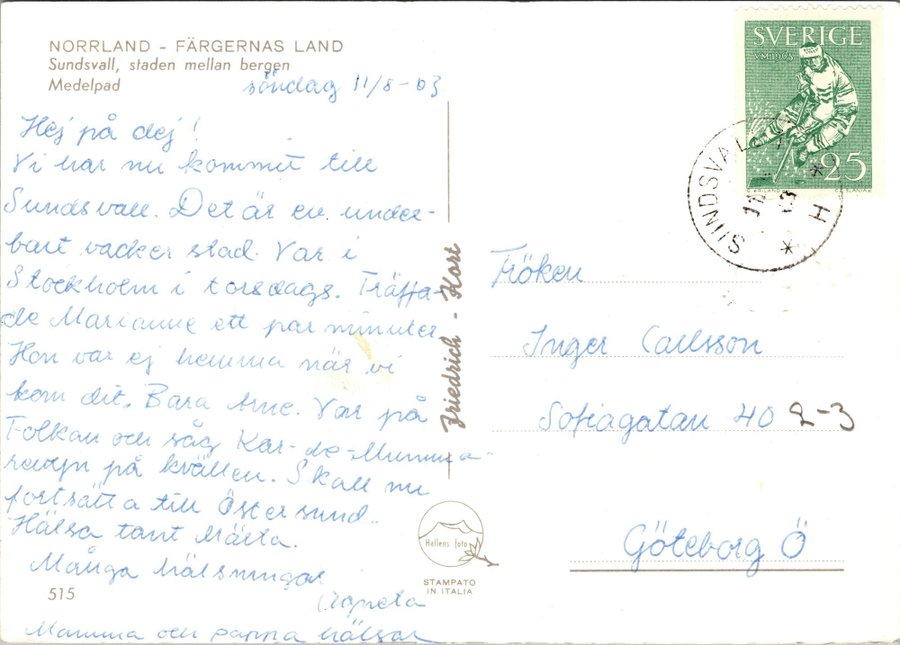 NORRLAND - FÄRGERNAS LAND
Sundsvall, staden mellan bergen
Medelpad
söndag 11/8-63
Hej på dej!
Vi har nu kommit till
Sundsvall. Det är en under-
bart vacker stad. Var i
Stockholm i torsdags. Träffa-
de Marianne ett par minuter.
Hon var ej hemma när vi
kom dit. Bara Arne. Var på
Folkan och såg Kar-de-Mumma-
revyn på kvällen. Skall nu
fortsätta till Östersund.
Hälsa tant Märta.
Många hälsningar
Agneta
Mamma och pappa hälsar
515
Friedrich-Kort
Hellens foto
STAMPATO
IN ITALIA
SVERIGE
VM 1963
25
SUNDSVALL
11
H
Fröken
Inger Carlsson
Sofiagatan 40 2-3
Göteborg Ö